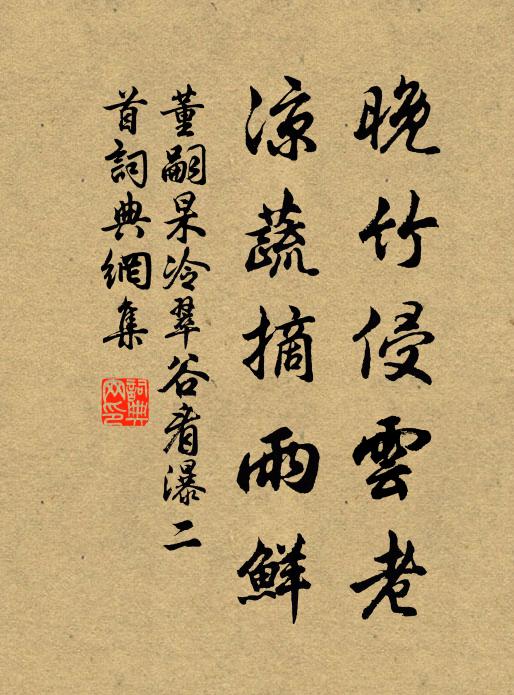 晚竹侵雲老
涼蔬摘雨鮮
董嗣杲冷翠谷看瀑二
首詞典網集
詞典網印